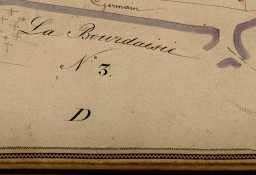 Germain
La Bourdaisie
N° 3.
D